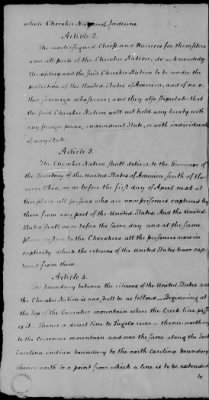 whole Cherokee Nation of Indians.
Article 2.
The undersigned Chiefs and Warriors for themselves
and all parts of the Cherokee Nation, do acknowledge
themselves and the said Cherokee Nation to be under the
protection of the United States of America, and of no o-
ther sovereign whosoever; and they also stipulate that
the said Cherokee Nation will not hold any treaty with
any foreign power, individual State, or with individuals
of any State.
Article 3.
The Cherokee Nation shall deliver to the Governor of
the Territory of the United States of America, South of the
river Ohio, on or before the first day of April next at
this place all persons who are now prisoners captured by
them from any part of the United States: And the United
States shall on or before the same day and at the same
place restore to the Cherokees all the prisoners now in
captivity which the citizens of the United States have cap-
tured from them.
Article 4.
The boundary between the citizens of the United States and
the Cherokee Nation is and shall be as follows: Beginning at
the top of the Currahee mountain where the Creek line pass-
es it: thence a direct line to Tugelo river: thence northeast
to the Occunna mountain and over the same along the South
Carolina indian boundary to the north Carolina boundary
thence north to a point from which a line is to be extended
to